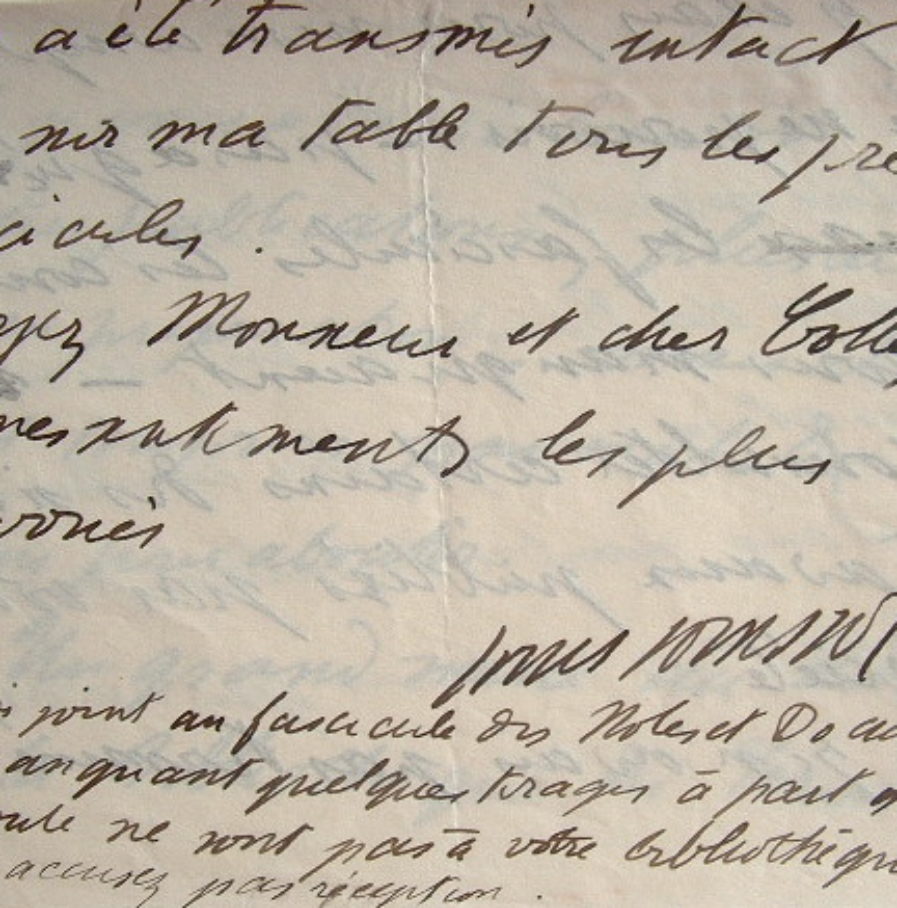 a été transmis intact
sur ma table tous les pre
cicules.
Monsieur et cher Colle
mes sentiments les plus
voués
joint au fascicule des Notes et Docu
anquant quelques tirages à part
ne sont pas à votre bibliothèqu
accusez pas réception.